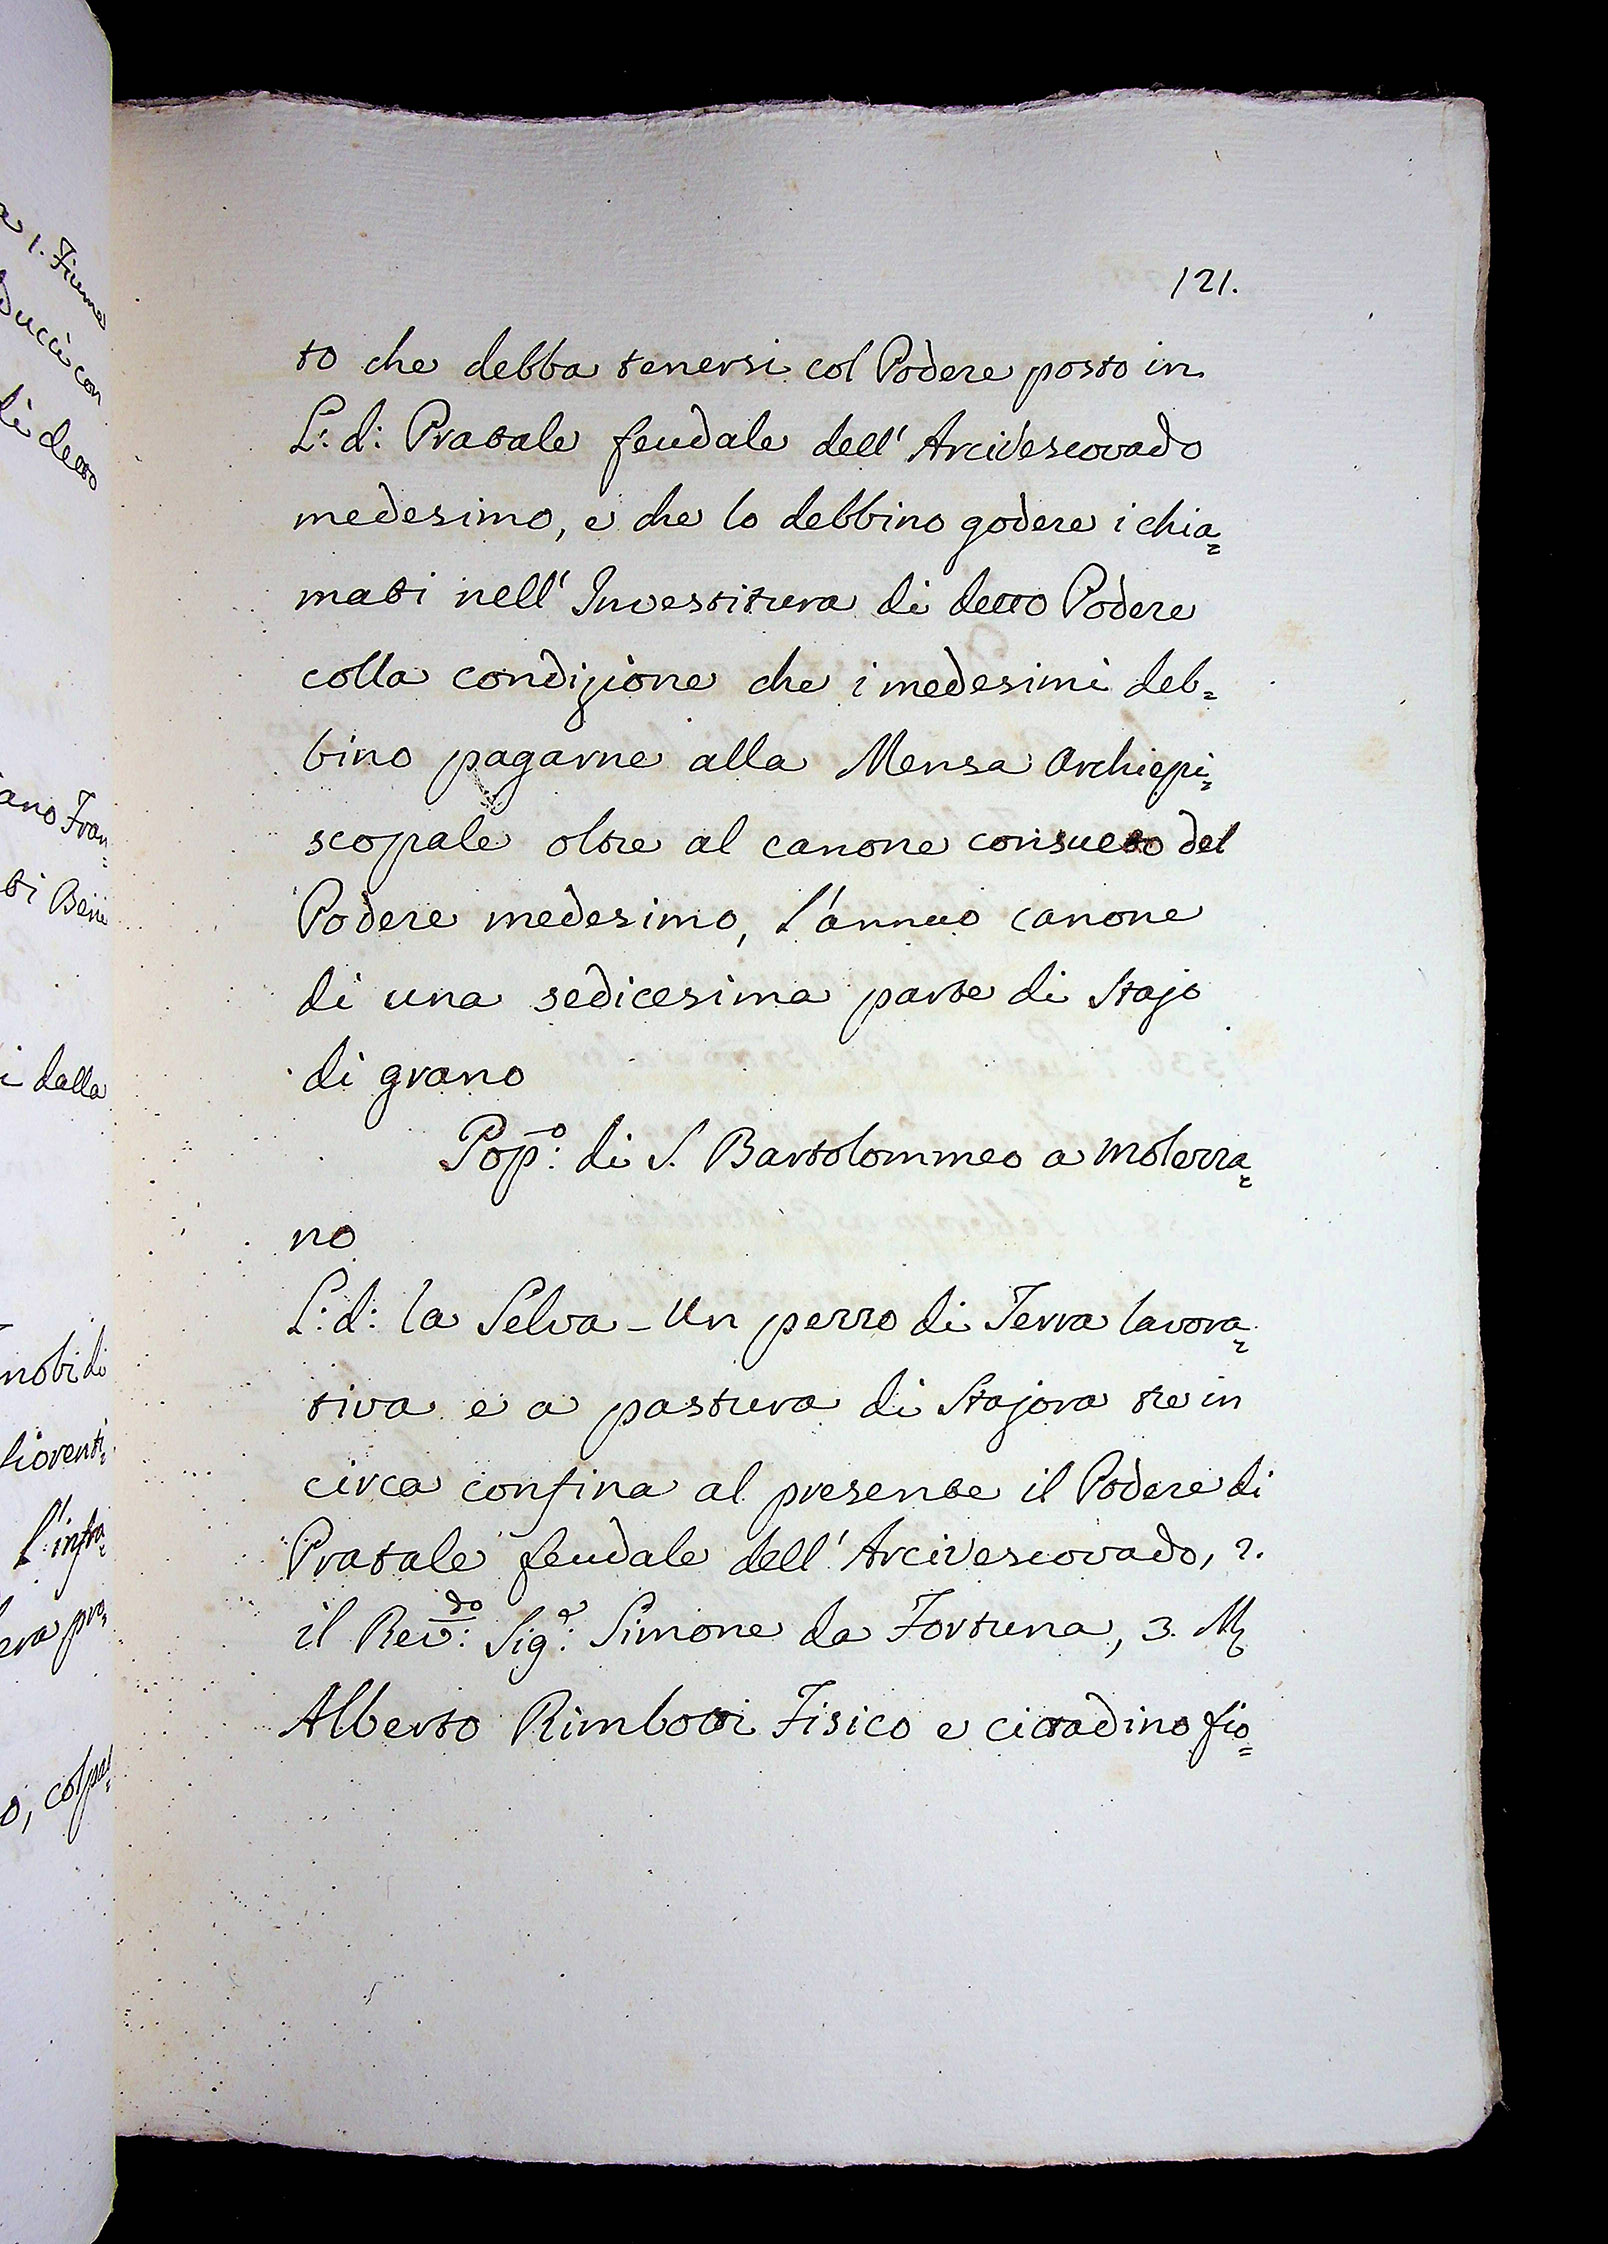 a 1. Fiume
ducci con
di detto
ano Fran=
ti Beni
i dalla
nobi di
fiorenti=
l'infra=
era pro=
o, col pa=
121.
to che debba tenersi col Podere posto in
L: d: Pratale feudale dell' Arcivescovado
medesimo, e che lo debbino godere i chia=
mati nell' Investitura di detto Podere
colla condizione che i medesimi deb=
bino pagarne alla Mensa Archiepi=
scopale oltre al canone consueto del
Podere medesimo, l'annuo canone
di una sedicesima parte di Stajo
di grano
Pop:o di S. Bartolommeo a Molezza=
no
L: d: la Selva - Un pezzo di Terra lavora=
tiva e a pastura di Stajora tre in
circa confina al presente il Podere di
Pratale feudale dell' Arcivescovado, 2.
il Rev:do Sig:e Simone da Fortuna, 3. M
Alberto Rimbotti Fisico e cittadino fio=